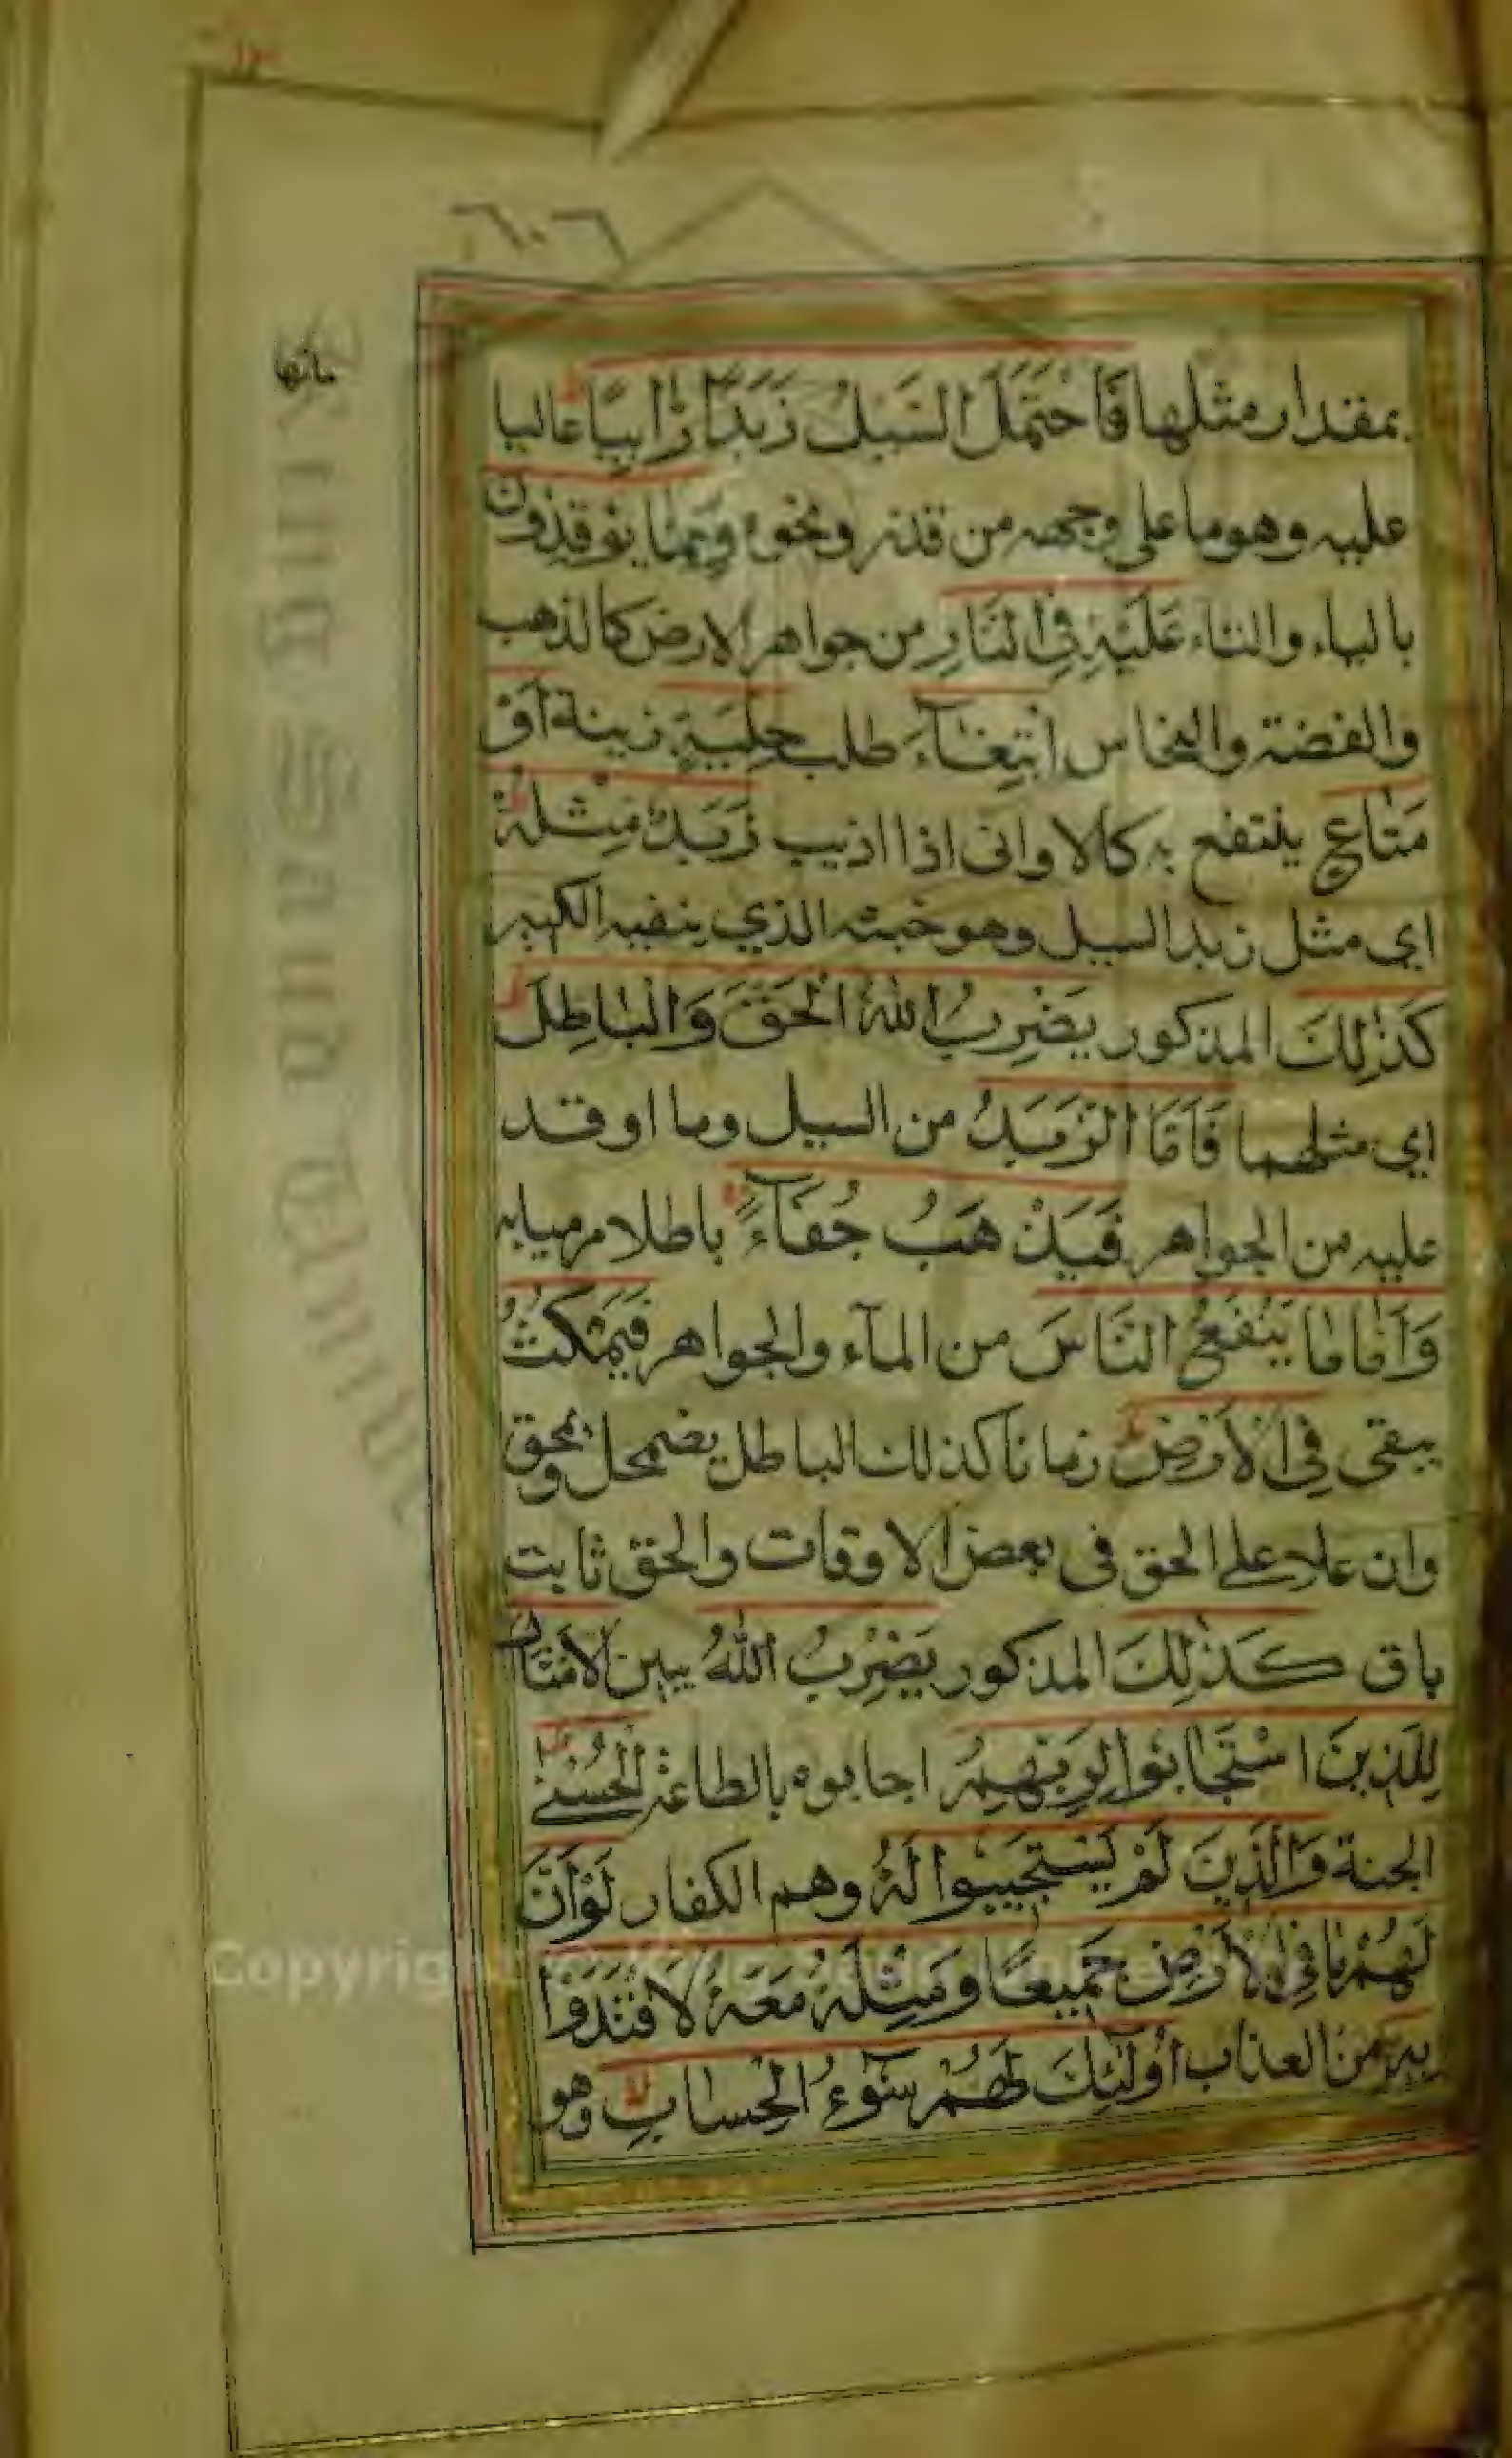 ٦٠٦
مائها
بمقدار مثلها فَاَحْتَمَلَ السَّيْلُ زَبَدًا رَّابِيًا عاليا
عليه وهو ما على وجهه من قذر ونحوه وَمِمَّا يُوقِدُونَ
بالياء والتاء عَلَيْهِ فِي النَّارِ من جواهر الارض كالذهب
والفضة والنحاس ابْتِغَآءَ طلب حِلْيَةٍ زينة اَوْ
مَتَاعٍ ينتفع به كالاوانى اذا اذيب زَبَدٌ مِثْلُهُ
اي مثل زبد السيل وهو خبثه الذي ينفيه الكير
كَذٰلِكَ المذكور يَضْرِبُ اللهُ الْحَقَّ وَالْبَاطِلَ
اي مثلهما فَاَمَّا الزَّبَدُ من السيل وما اوقد
عليه من الجواهر فَيَذْهَبُ جُفَآءً باطلا مرميا به
وَاَمَّا مَا يَنْفَعُ النَّاسَ من المآء والجواهر فَيَمْكُثُ
يبقى فِي الْاَرْضِ زمانا كذلك الباطل يضمحل ويمحق
وان علا على الحق فى بعض الاوقات والحق ثابت
باق كَذٰلِكَ المذكور يَضْرِبُ اللهُ يبين الْاَمْثَالَ
لِلَّذِينَ اسْتَجَابُوا لِرَبِّهِمُ اجابوه بالطاعة الْحُسْنٰى
الجنة وَالَّذِينَ لَمْ يَسْتَجِيبُوا لَهُ وهم الكفار لَوْ اَنَّ
لَهُمْ مَا فِي الْاَرْضِ جَمِيعًا وَمِثْلَهُ مَعَهُ لَافْتَدَوْا
بِهِ من العذاب اُولٰٓئِكَ لَهُمْ سُوٓءُ الْحِسَابِ وهو